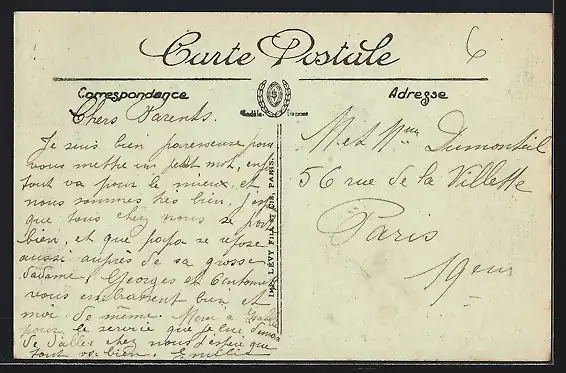 Carte Postale
6
Correspondance
Adresse
Chers Parents.
Je suis bien paresseuse pour
vous mettre un petit mot, enfin
tout va pour le mieux et
nous sommes très bien, j'espère
que tous chez nous se porte
bien, et que papa se repose
aussi auprès de sa grosse
dadame. Georges et
vous embrassent bien et
moi de même. Merci à
pour le service que je lui
d'aller chez nous j'espère que
tout va bien. Emilie
IMP. LÉVY FILS ET CIE, PARIS.
M. et Mme Dumonteil
56 rue de la Villette
Paris
19eme